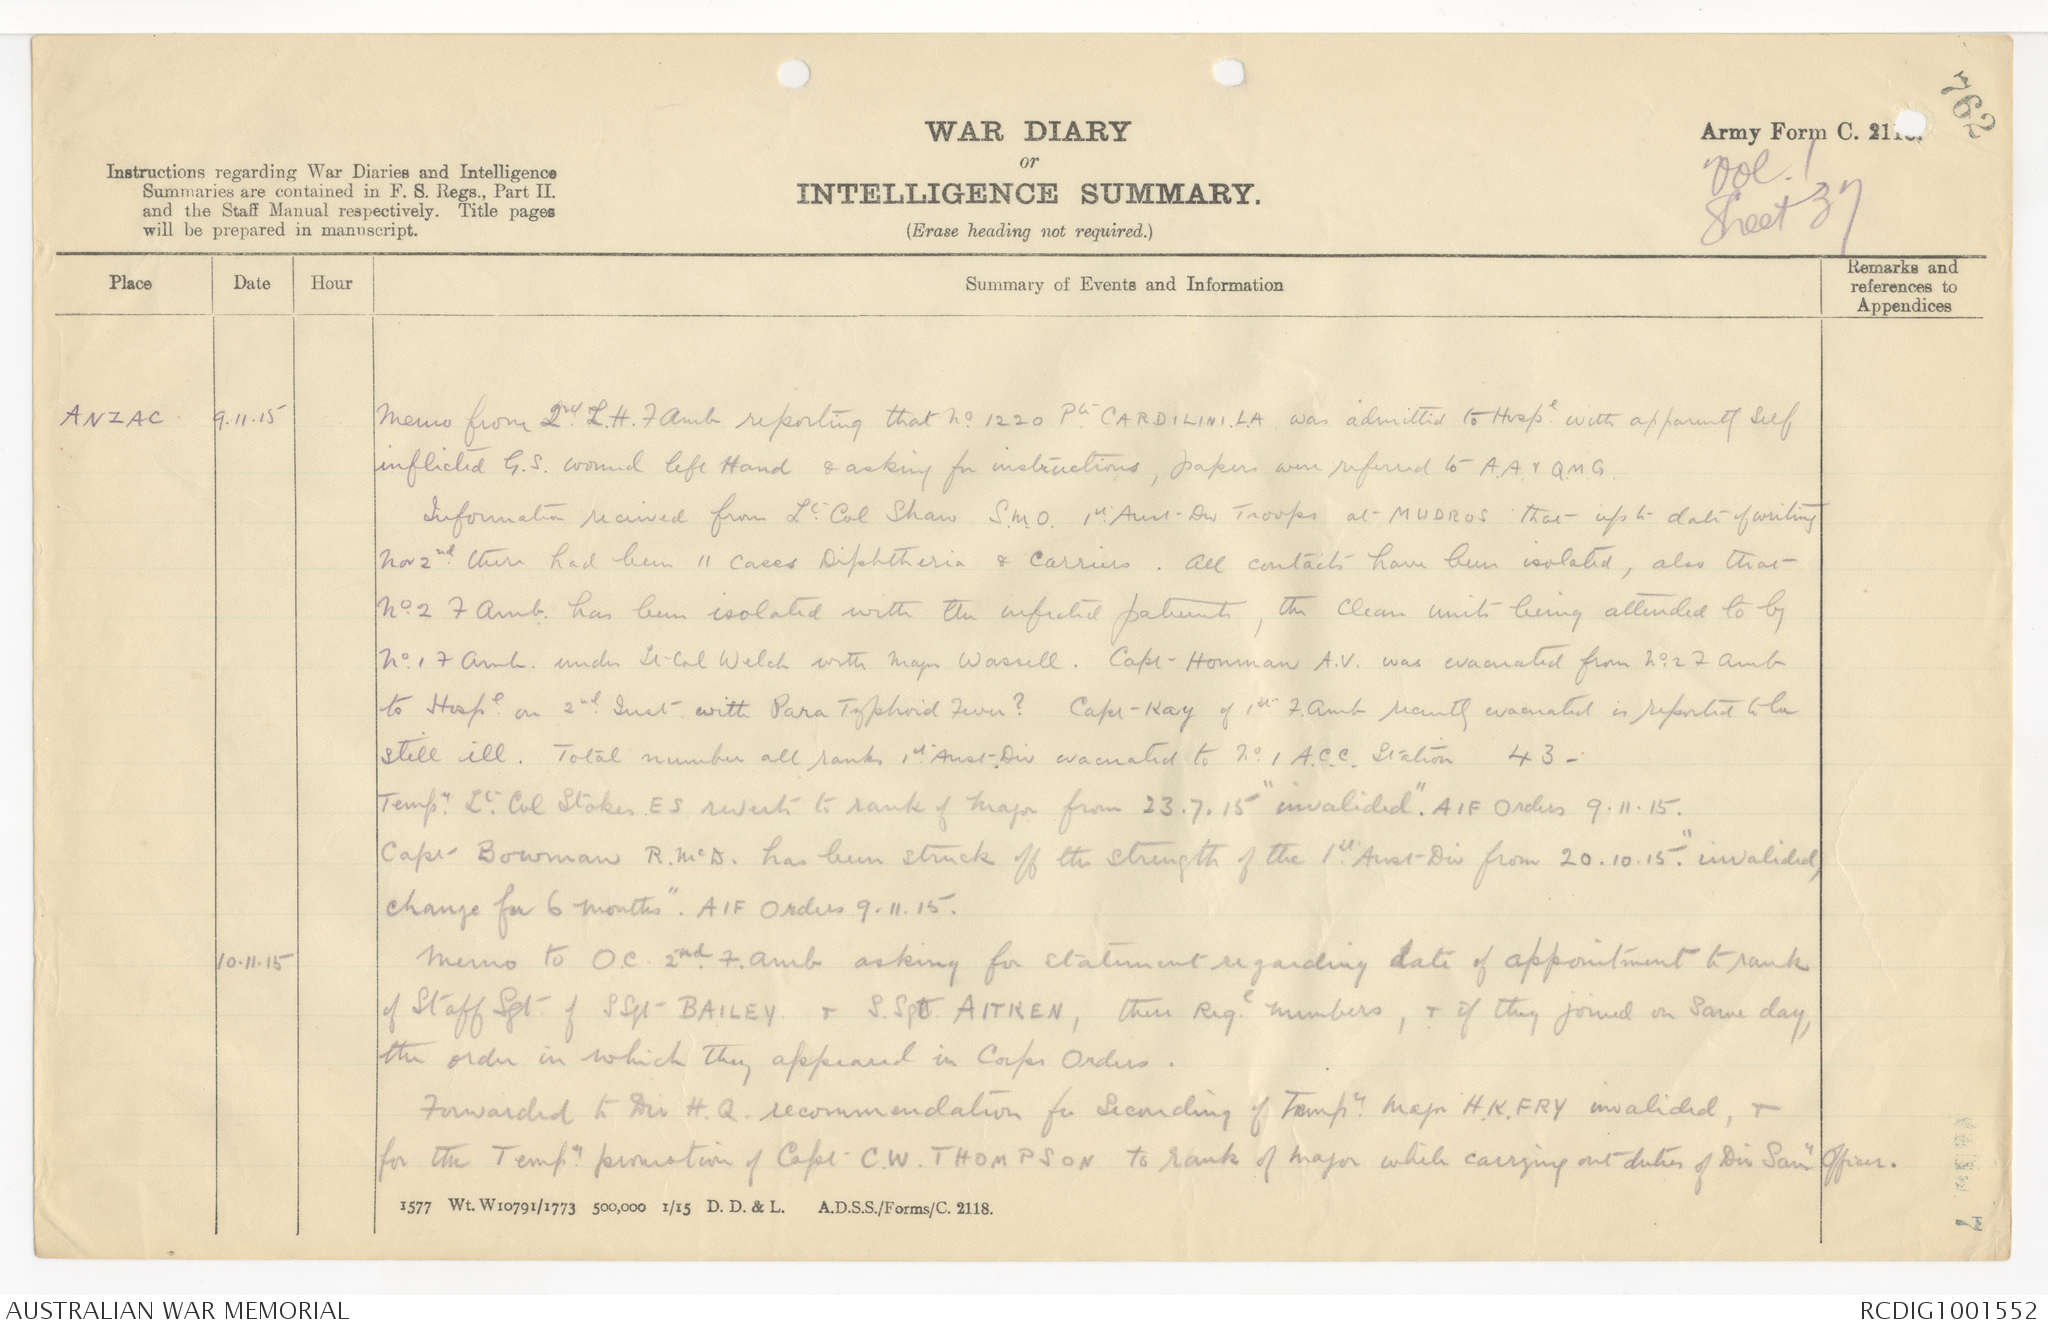 762
WAR DIARY
or
INTELLIGENCE SUMMARY.
(Erase heading not required.)
Army Form C. 2118.
Vol. 1
Sheet 37
Instructions regarding War Diaries and Intelligence
Summaries are contained in F. S. Regs., Part II.
and the Staff Manual respectively. Title pages
will be prepared in manuscript.
Place Date Hour Summary of Events and Information Remarks and references to Appendices
ANZAC 9.11.15 Memo from 2nd L.H. F Amb reporting that No 1220 Pte CARDILINI. L.A was admitted to Hospl with apparently Self
inflicted G.S. wound left Hand & asking for instructions, papers were referred to A.A & Q.M.G.
Information received from Lt Col Shaw S.M.O. 1st Aust-Div Troops at MUDROS that up to date of writing
Nov 2nd there had been 11 cases Diphtheria & Carriers. All contacts have been isolated, also that
No. 2 F Amb. has been isolated with the infected patients, the clean units being attended to by
No. 1 F Amb. under Lt-Col Welch with Major Wassell. Capt- Honman A.V. was evacuated from No. 2 F Amb
to Hospl on 2nd Inst with Para Typhoid Fever? Capt-Kay of 1st F. Amb recently evacuated is reported to be
still ill. Total number all ranks 1st Aust-Div evacuated to No 1 A.C.C. Station 43 -
Tempy Lt Col Stokes. E S reverts to rank of Major from 23.7.15 "invalided". AIF Orders 9.11.15.
Capt- Bowman R. McD. has been struck off the strength of the 1st Aust-Div from 20.10.15. "invalided,
change for 6 months". AIF Orders 9.11.15.
10.11.15 Memo to O.C. 2nd F. Amb asking for statement regarding date of appointment to rank
of Staff Sgt- of S Sgt- BAILEY & S. Sgt AITKEN, their Regl numbers, & if they joined on same day,
the order in which they appeared in Corps Orders.
Forwarded to Div H.Q. recommendation for Seconding of Tempy Major H.K. FRY invalided, &
for the Tempy promotion of Capt- C.W. THOMPSON to rank of Major while carrying out duties of Div Sany Officer.
1577 Wt. W10791/1773 500,000 1/15 D. D. & L. A.D.S.S./Forms/C. 2118.
AUSTRALIAN WAR MEMORIAL
RCDIG1001552